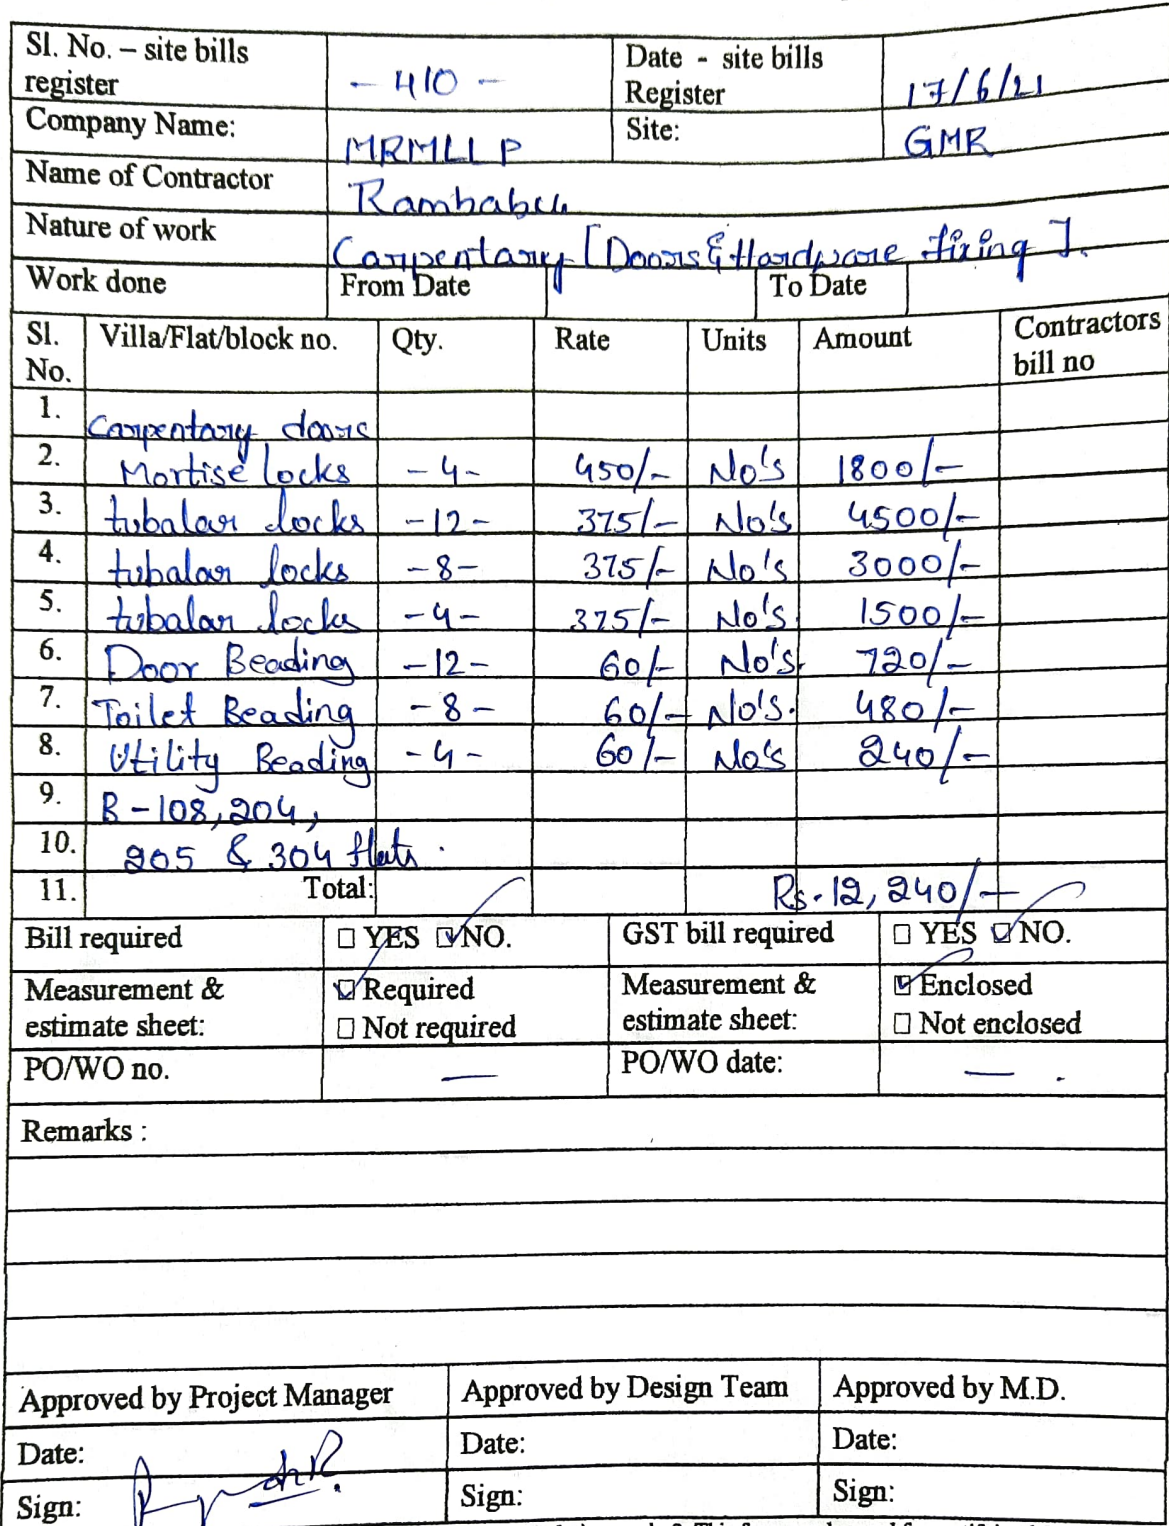 Sl. No. – site bills register - 410 - Date - site bills Register 17/6/21
Company Name: MRMLLP Site: GMR
Name of Contractor Rambabu
Nature of work Carpentary [Doors & Hardware fixing].
Work done From Date To Date
Sl. No. Villa/Flat/block no. Qty. Rate Units Amount Contractors bill no
1. Carpentary doors
2. Mortise locks -4- 450/- No's 1800/-
3. tubalar locks -12- 375/- No's 4500/-
4. tubalar locks -8- 375/- No's 3000/-
5. tubalar locks -4- 375/- No's 1500/-
6. Door Beading -12- 60/- No's 720/-
7. Toilet Beading -8- 60/- No's. 480/-
8. Utility Beading -4- 60/- No's 240/-
9. B-108, 204,
10. 205 & 304 flats.
11. Total: Rs. 12,240/-
Bill required ☐ YES ☑ NO. GST bill required ☐ YES ☑ NO.
Measurement & estimate sheet: ☑ Required ☐ Not required Measurement & estimate sheet: ☑ Enclosed ☐ Not enclosed
PO/WO no. — PO/WO date: — .
Remarks :
Approved by Project Manager Approved by Design Team Approved by M.D.
Date: Date: Date:
Sign: Sign: Sign: